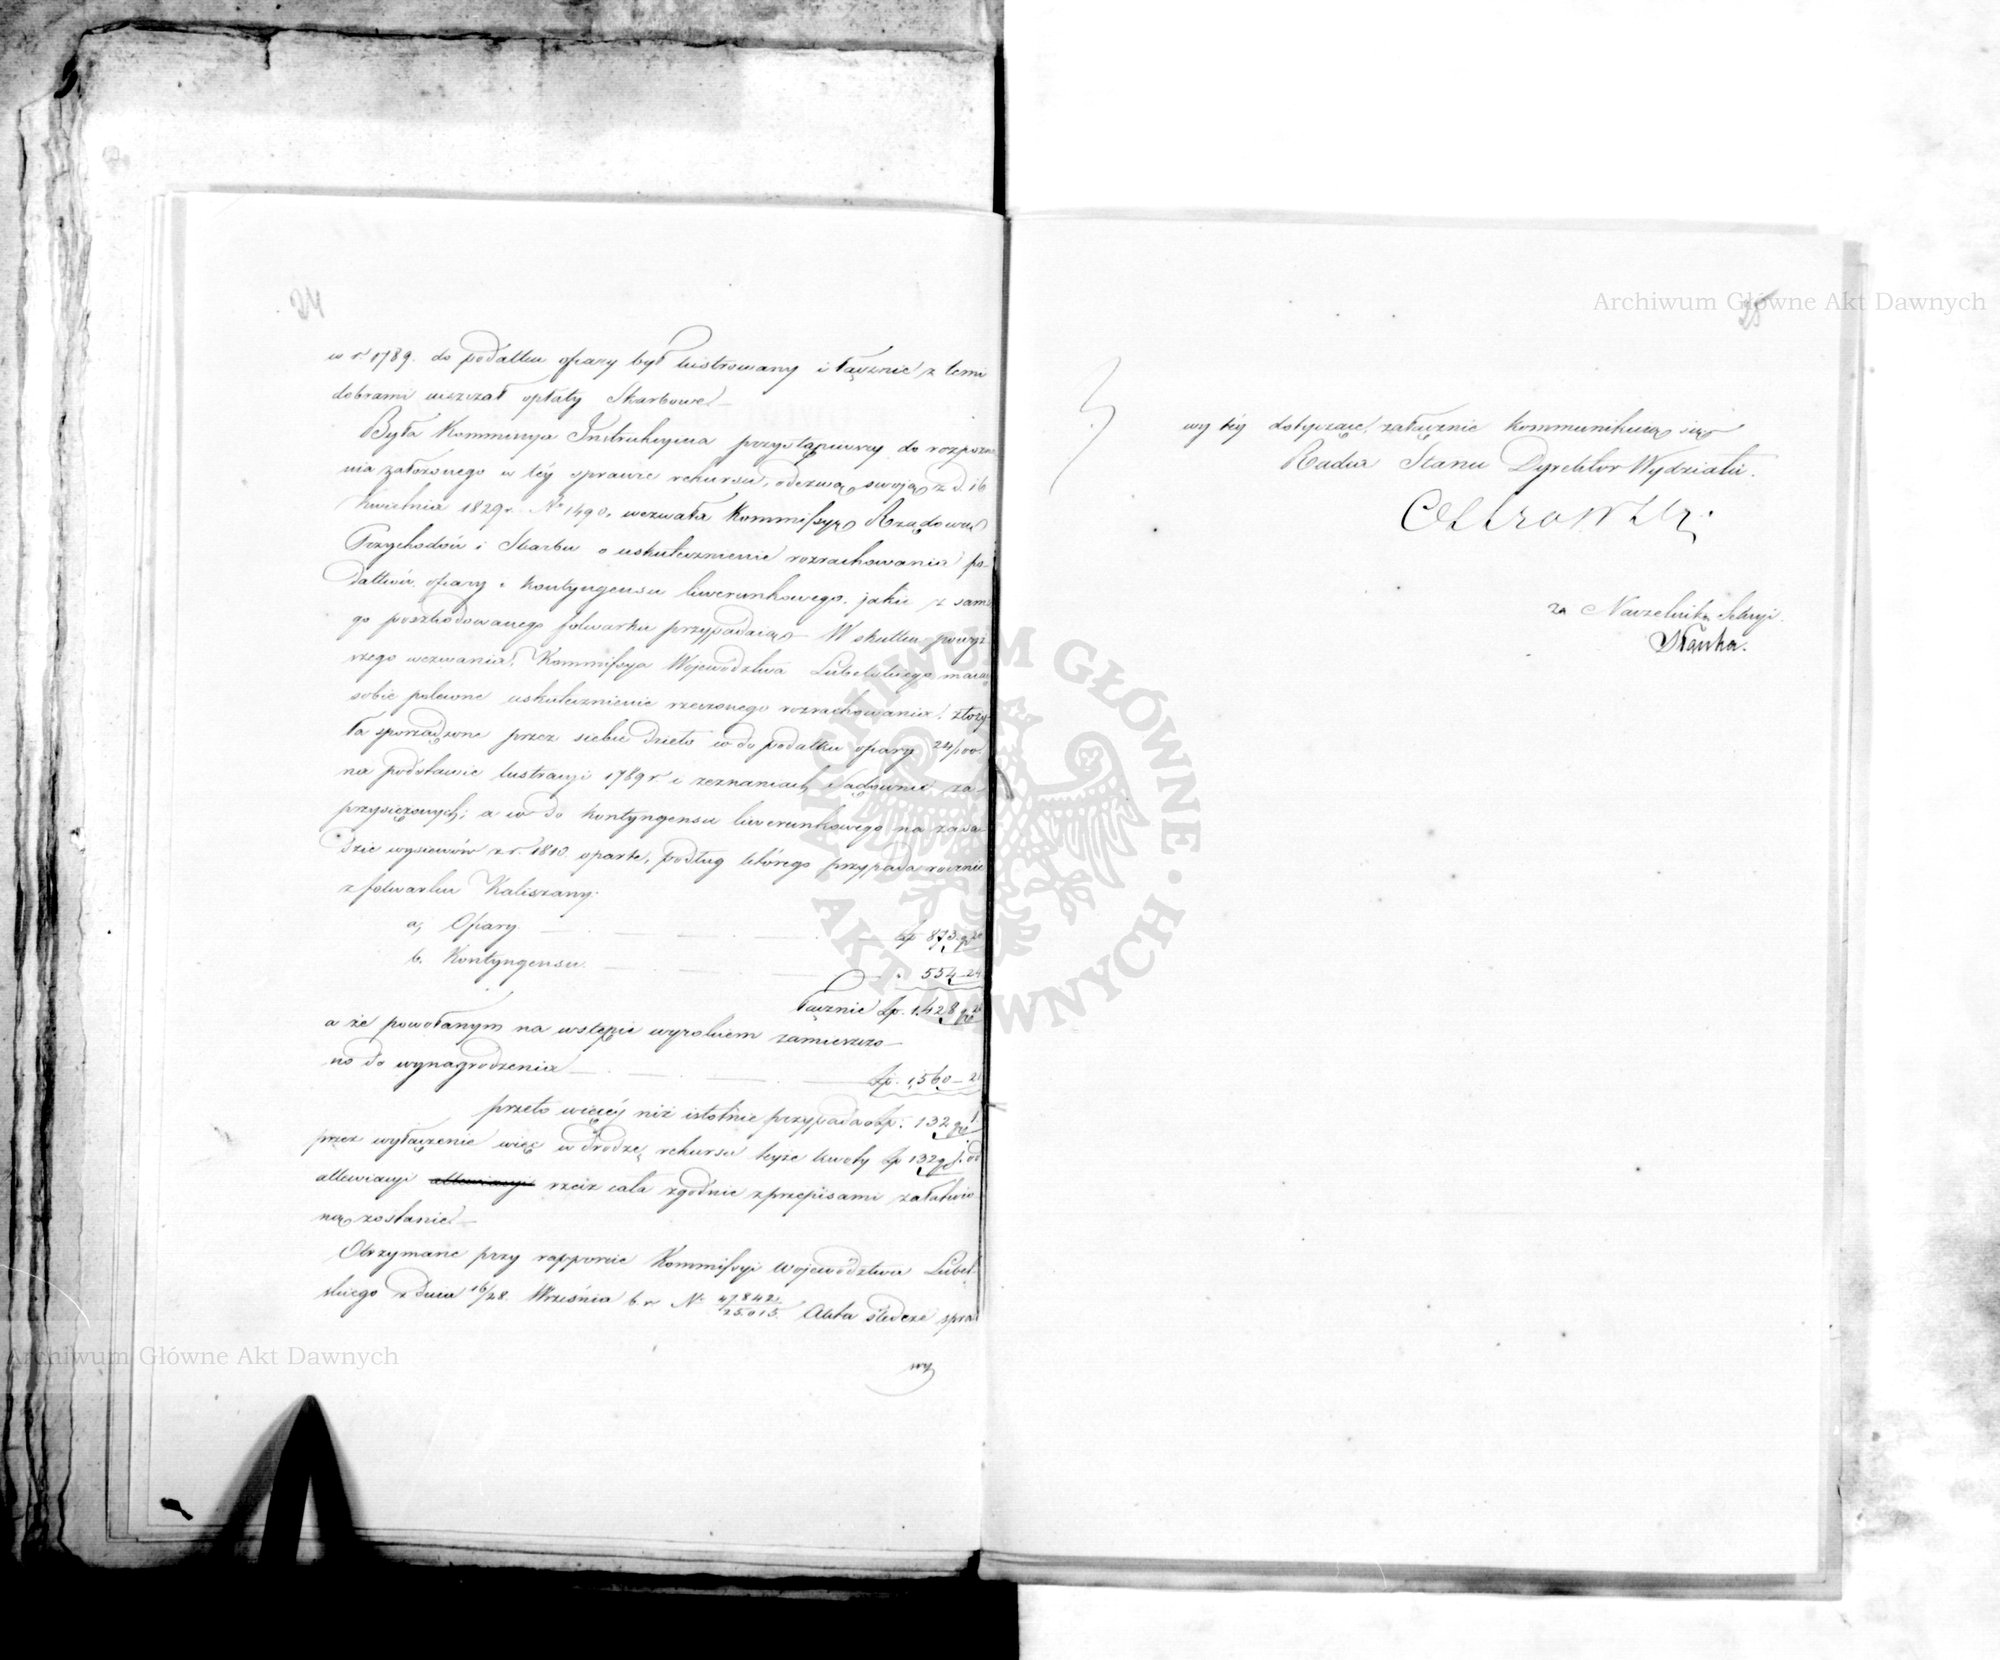 24
w r. 1789. do podatku ofiary był lustrowany i łącznie z temi
dobrami uiszczał opłaty Skarbowe.—
Była Kommissya Instrukcyjna przystąpiwszy do rozpozna
nia założonego w téy sprawie rekursu, odezwą swoją z d. 16
Kwietnia 1829 r. No 1490, wezwała Kommissyą Rządową
Przychodów i Skarbu o uskutecznienie rozrachowania po-
datków, ofiary i kontyngensu liwerunkowego, jakie z same
go poszkodowanego folwarku przypadaią.— W skutku powyż
szego wezwania, Kommissya Województwa Lubelskiego maiąc
sobie polecone uskutecznienie rzeczonego rozrachowania, złoży-
ła sporządzone przez siebie dzieło w do podatku ofiary 24/100.
na podstawie lustracyi 1789 r i zeznaniach Sądownie za-
przysiężonych; a w do kontyngensu liwerunkowego na zasa
dzie wysiewów z r. 1810 oparte, podług którego przypada rocznie
z folwarku Kaliszany.
a, Ofiary — — — — Zp 873 gr 20
b. Kontyngensu — — — — " 554 — 24
łącznie Zp. 1,428 gr
a że powołanym na wstępie wyrokiem zamieszczo—
no do wynagrodzenia — — — Zp. 1,560 —
przeto więcéy niż istotnie przypada o Zp. 132 gr 1
przez wyłączenie więc w drodze rekursu teyże kwoty Zp 132 gr 1. od
allewiacyi allewiacyi rzecz cała zgodnie z przepisami załatwio
ną zostanie.—
Otrzymane przy rapporcie Kommissyi Województwa Lubel-
skiego z dnia 16/28. Września b. r. No 47842/25015. Akta śledcze spra
wy
25
wy téy dotyczące, załącznie kommunikuią się.
Radca Stanu Dyrektor Wydziału.
za Naczelnika Sekcyi.
Archiwum Główne Akt Dawnych
Archiwum Główne Akt Dawnych
ARCHIWUM GŁÓWNE · AKT DAWNYCH ·